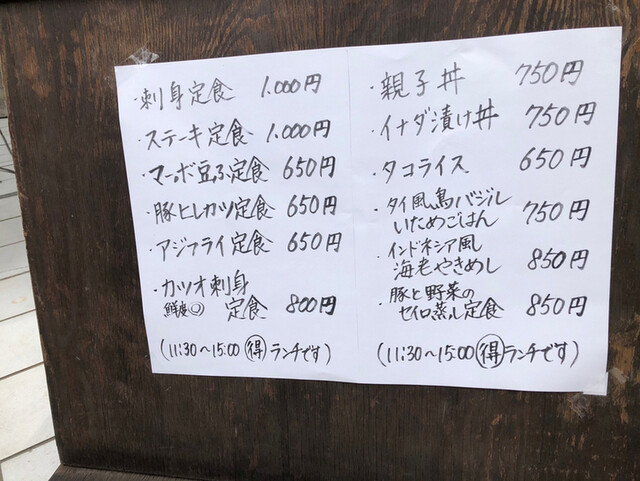 ・刺身定食 1.000円
・ステーキ定食 1.000円
・マーボ豆ふ定食 650円
・豚ヒレカツ定食 650円
・アジフライ定食 650円
・カツオ刺身
鮮度◎ 定食 800円
(11:30〜15:00 得ランチです)
・親子丼 750円
・イナダ漬け丼 750円
・タコライス 650円
・タイ風鳥バジル
いためごはん 750円
・インドネシア風
海老やきめし 850円
・豚と野菜の
セイロ蒸し定食 850円
(11:30〜15:00 得ランチです)